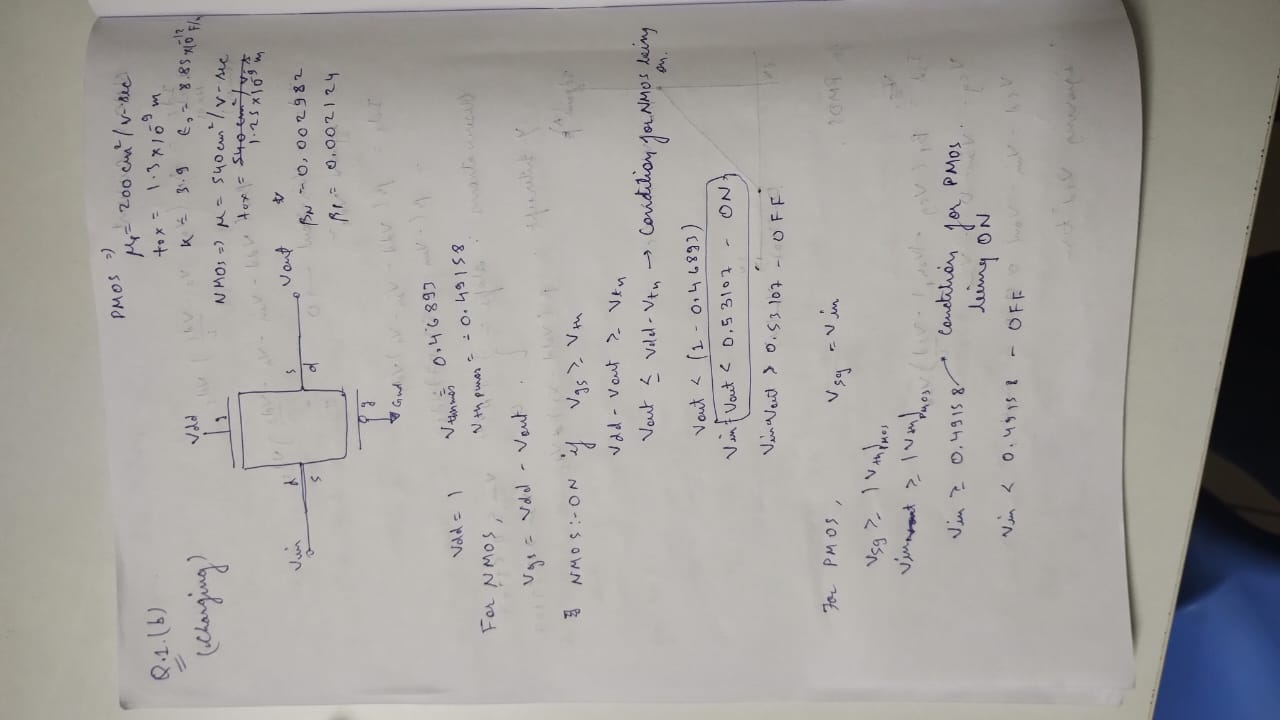 Q.1.(b)
(Charging)
PMOS ⇒
μp = 200 cm²/V-sec
tox = 1.3 x 10⁻⁹ m
k = 3.9 ε₀ = 8.85 x 10⁻¹² F/m
NMOS ⇒ μ = 540 cm²/V-sec
tox =
1.25 x 10⁻⁹ m
βN = 0.002982
βP = 0.002124
Vdd
g
Vin
d
s
s
d
Vout
g
Gnd
Vdd = 1
Vthnmos = 0.46893
Vthpmos = -0.49158
For NMOS,
Vgs = Vdd - Vout
NMOS :- ON if Vgs ≥ Vtn
Vdd - Vout ≥ Vtn
Vout ≤ Vdd - Vtn → Condition for NMOS being on.
Vout < (1 - 0.46893)
Vin = Vout < 0.53107 - ON
Vin=Vout > 0.53107 - OFF
For PMOS,
Vsg = Vin
Vsg ≥ |Vth|PMOS
Vin ≥ |Vth|PMOS
Vin ≥ 0.49158 → Condition for PMOS being ON
Vin < 0.49158 - OFF